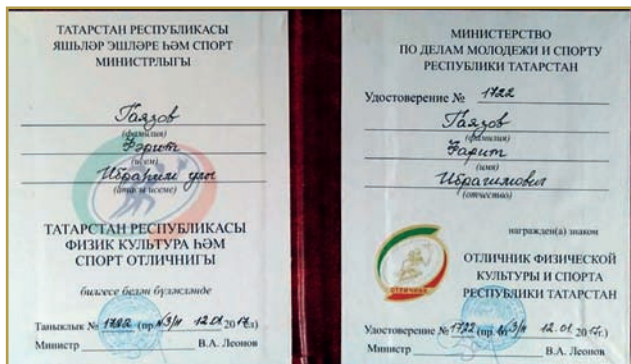 ТАТАРСТАН РЕСПУБЛИКАСЫ
ЯШЬЛӘР ЭШЛӘРЕ ҺӘМ СПОРТ
МИНИСТРЛЫГЫ
Гаязов
(фамилия)
Фәрит
(исем)
Ибраһим улы
(атасы исеме)
ТАТАРСТАН РЕСПУБЛИКАСЫ
ФИЗИК КУЛЬТУРА ҺӘМ
СПОРТ ОТЛИЧНИГЫ
билгесе белән бүләкләнде
Таныклык № 1722 (пр. №3/н 12.01.2017г.)
Министр В.А. Леонов
МИНИСТЕРСТВО
ПО ДЕЛАМ МОЛОДЕЖИ И СПОРТУ
РЕСПУБЛИКИ ТАТАРСТАН
Удостоверение № 1722
Гаязов
(фамилия)
Фарит
(имя)
Ибрагимович
(отчество)
награжден(а) знаком
ОТЛИЧНИК
ОТЛИЧНИК ФИЗИЧЕСКОЙ
КУЛЬТУРЫ И СПОРТА
РЕСПУБЛИКИ ТАТАРСТАН
Удостоверение № 1722 (пр. №3/н 12.01.2017г.)
Министр В.А. Леонов